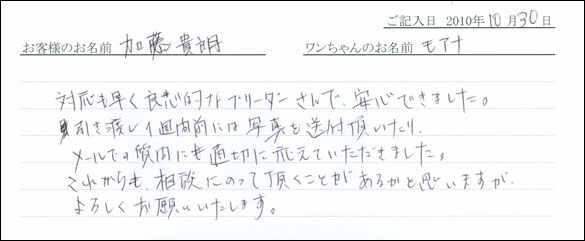 ご記入日 2010年10月30日
お客様のお名前 加藤貴朗 ワンちゃんのお名前 モアナ
対応も早く良心的なブリーダーさんで、安心できました。
引き渡し1週間前には写真も送付頂いたり、
メールでの質問にも適切に応えていただきました。
これからも、相談にのって頂くことがあるかと思いますが、
よろしくお願いいたします。